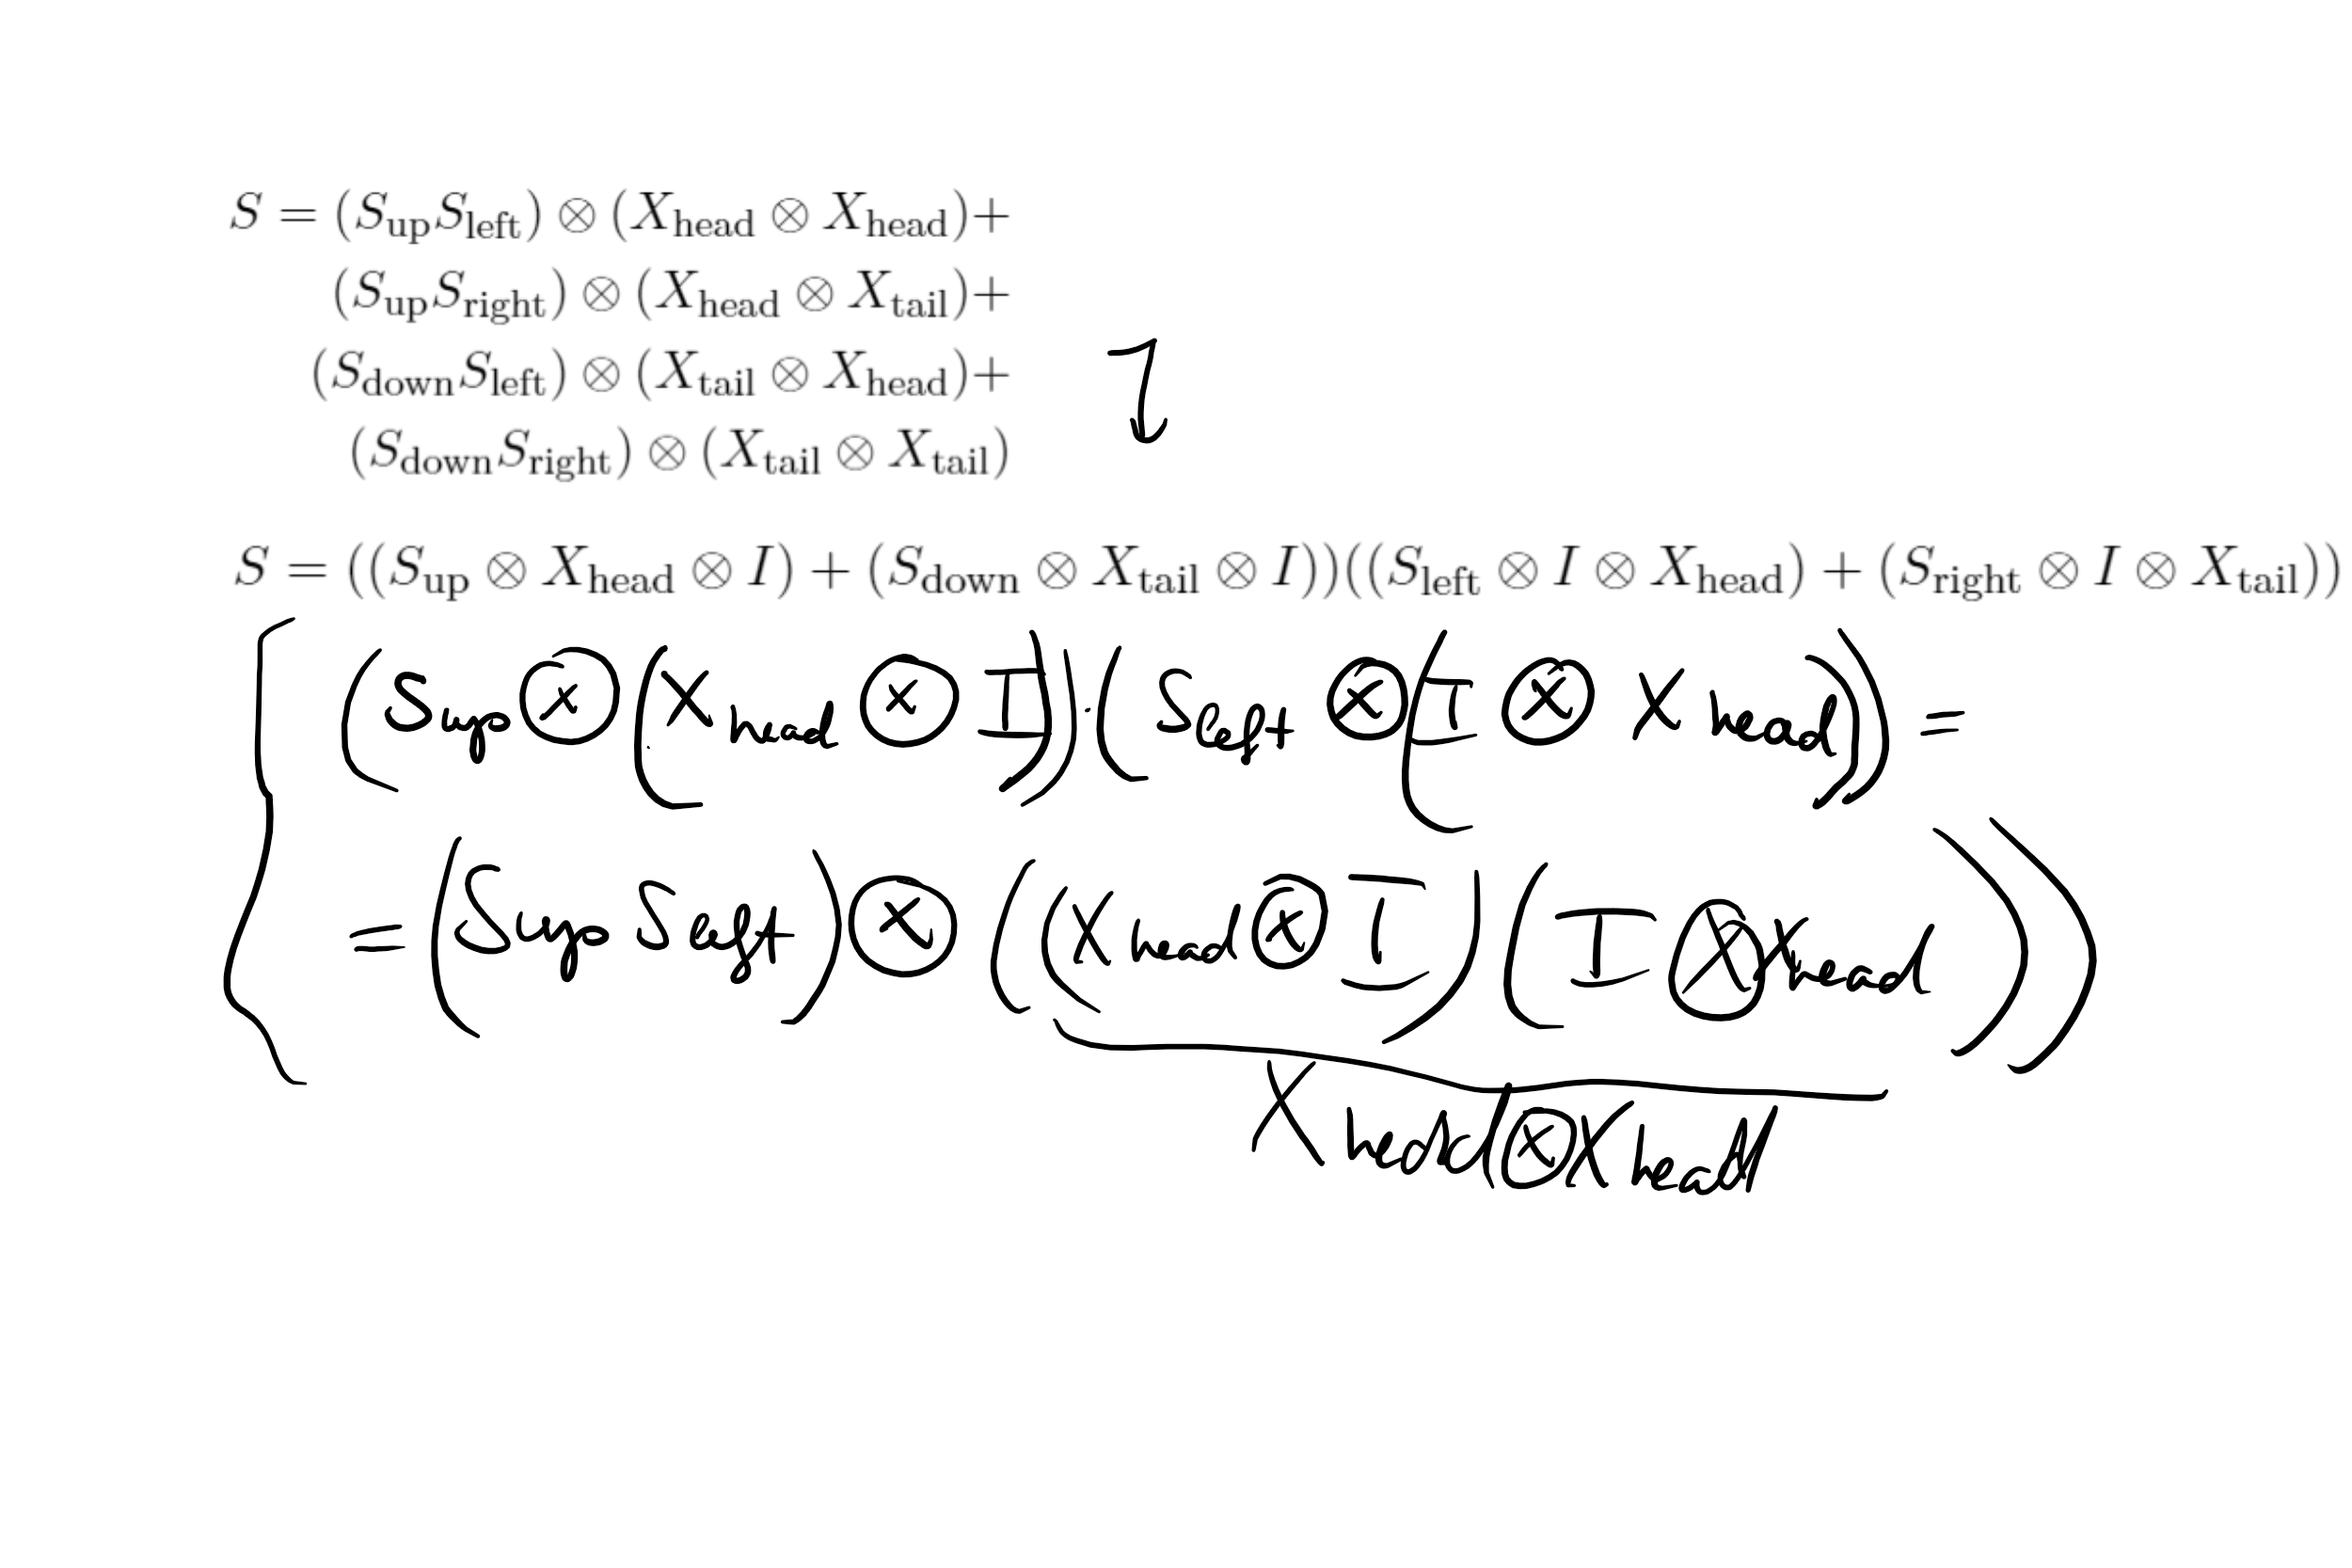 S = (S_up S_left) ⊗ (X_head ⊗ X_head)+
(S_up S_right) ⊗ (X_head ⊗ X_tail)+
(S_down S_left) ⊗ (X_tail ⊗ X_head)+
(S_down S_right) ⊗ (X_tail ⊗ X_tail)
S = ((S_up ⊗ X_head ⊗ I) + (S_down ⊗ X_tail ⊗ I))((S_left ⊗ I ⊗ X_head) + (S_right ⊗ I ⊗ X_tail))
(S_up ⊗ (X_head ⊗ I)) · (S_left ⊗ (I ⊗ X_head)) =
= (S_up S_left) ⊗ ((X_head ⊗ I) (I ⊗ X_head)))
X_head ⊗ X_head